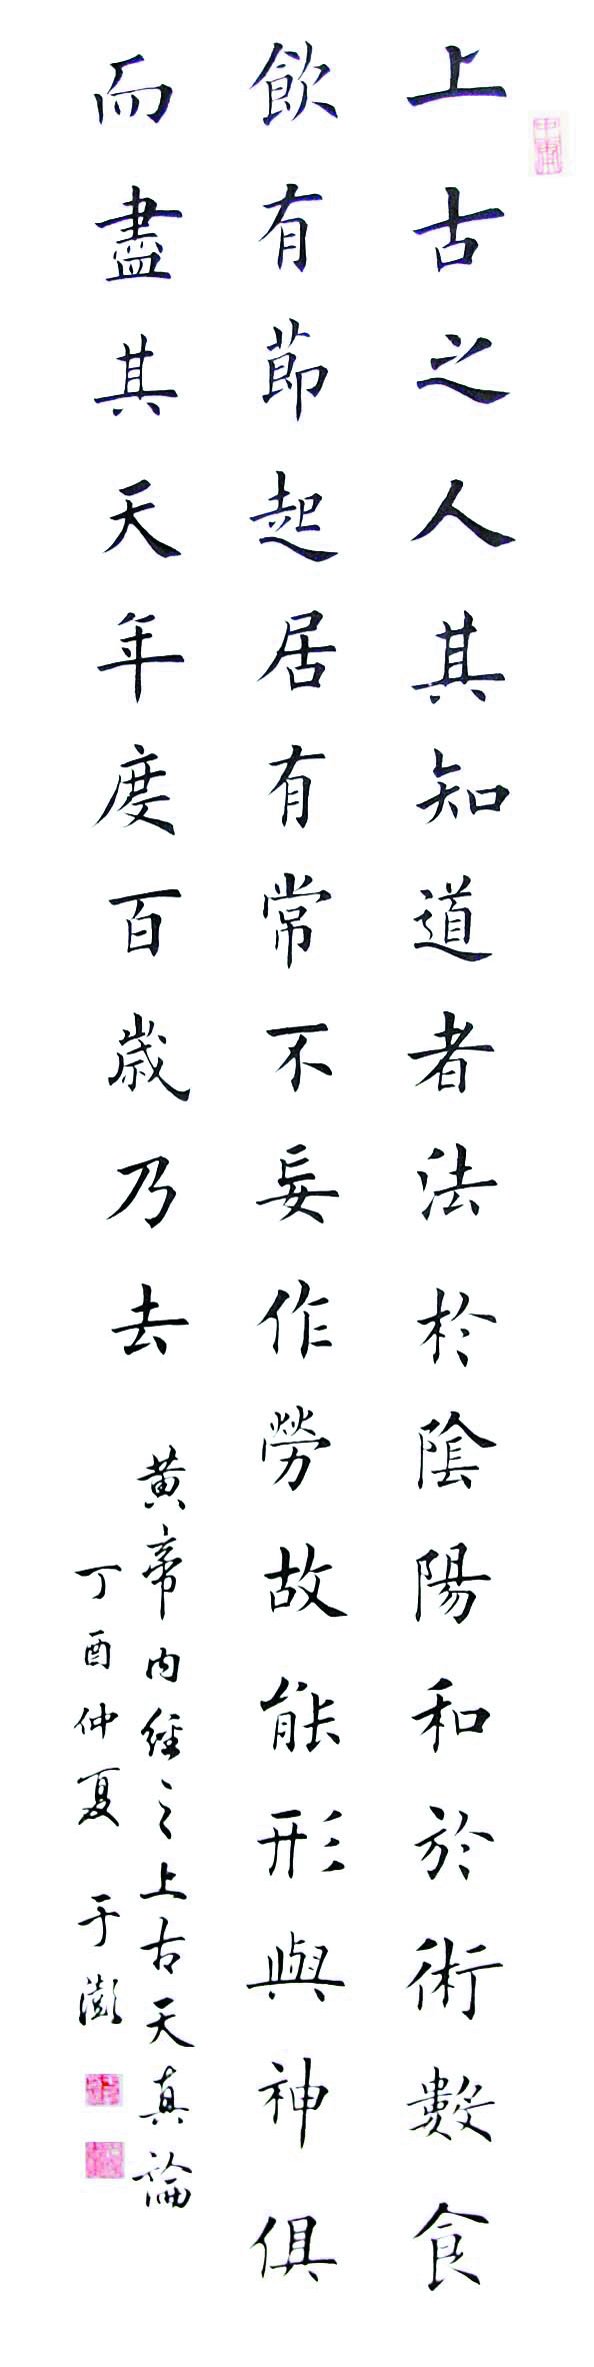 上古之人其知道者法於陰陽和於術數食
飲有節起居有常不妄作勞故能形與神俱
而盡其天年度百歲乃去
黃帝內經之上古天真論
丁酉仲夏 于澎